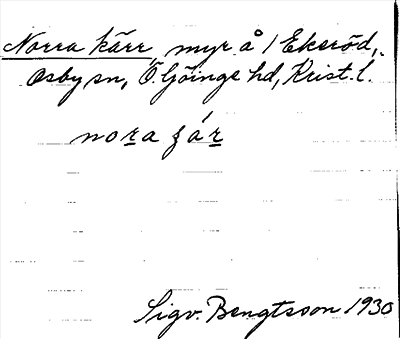 Norra kärr, myr å 1 Eksröd,
Osby sn, Ö. Göinge hd, Krist. l.
nora ʃár
Sigv. Bengtsson 1930